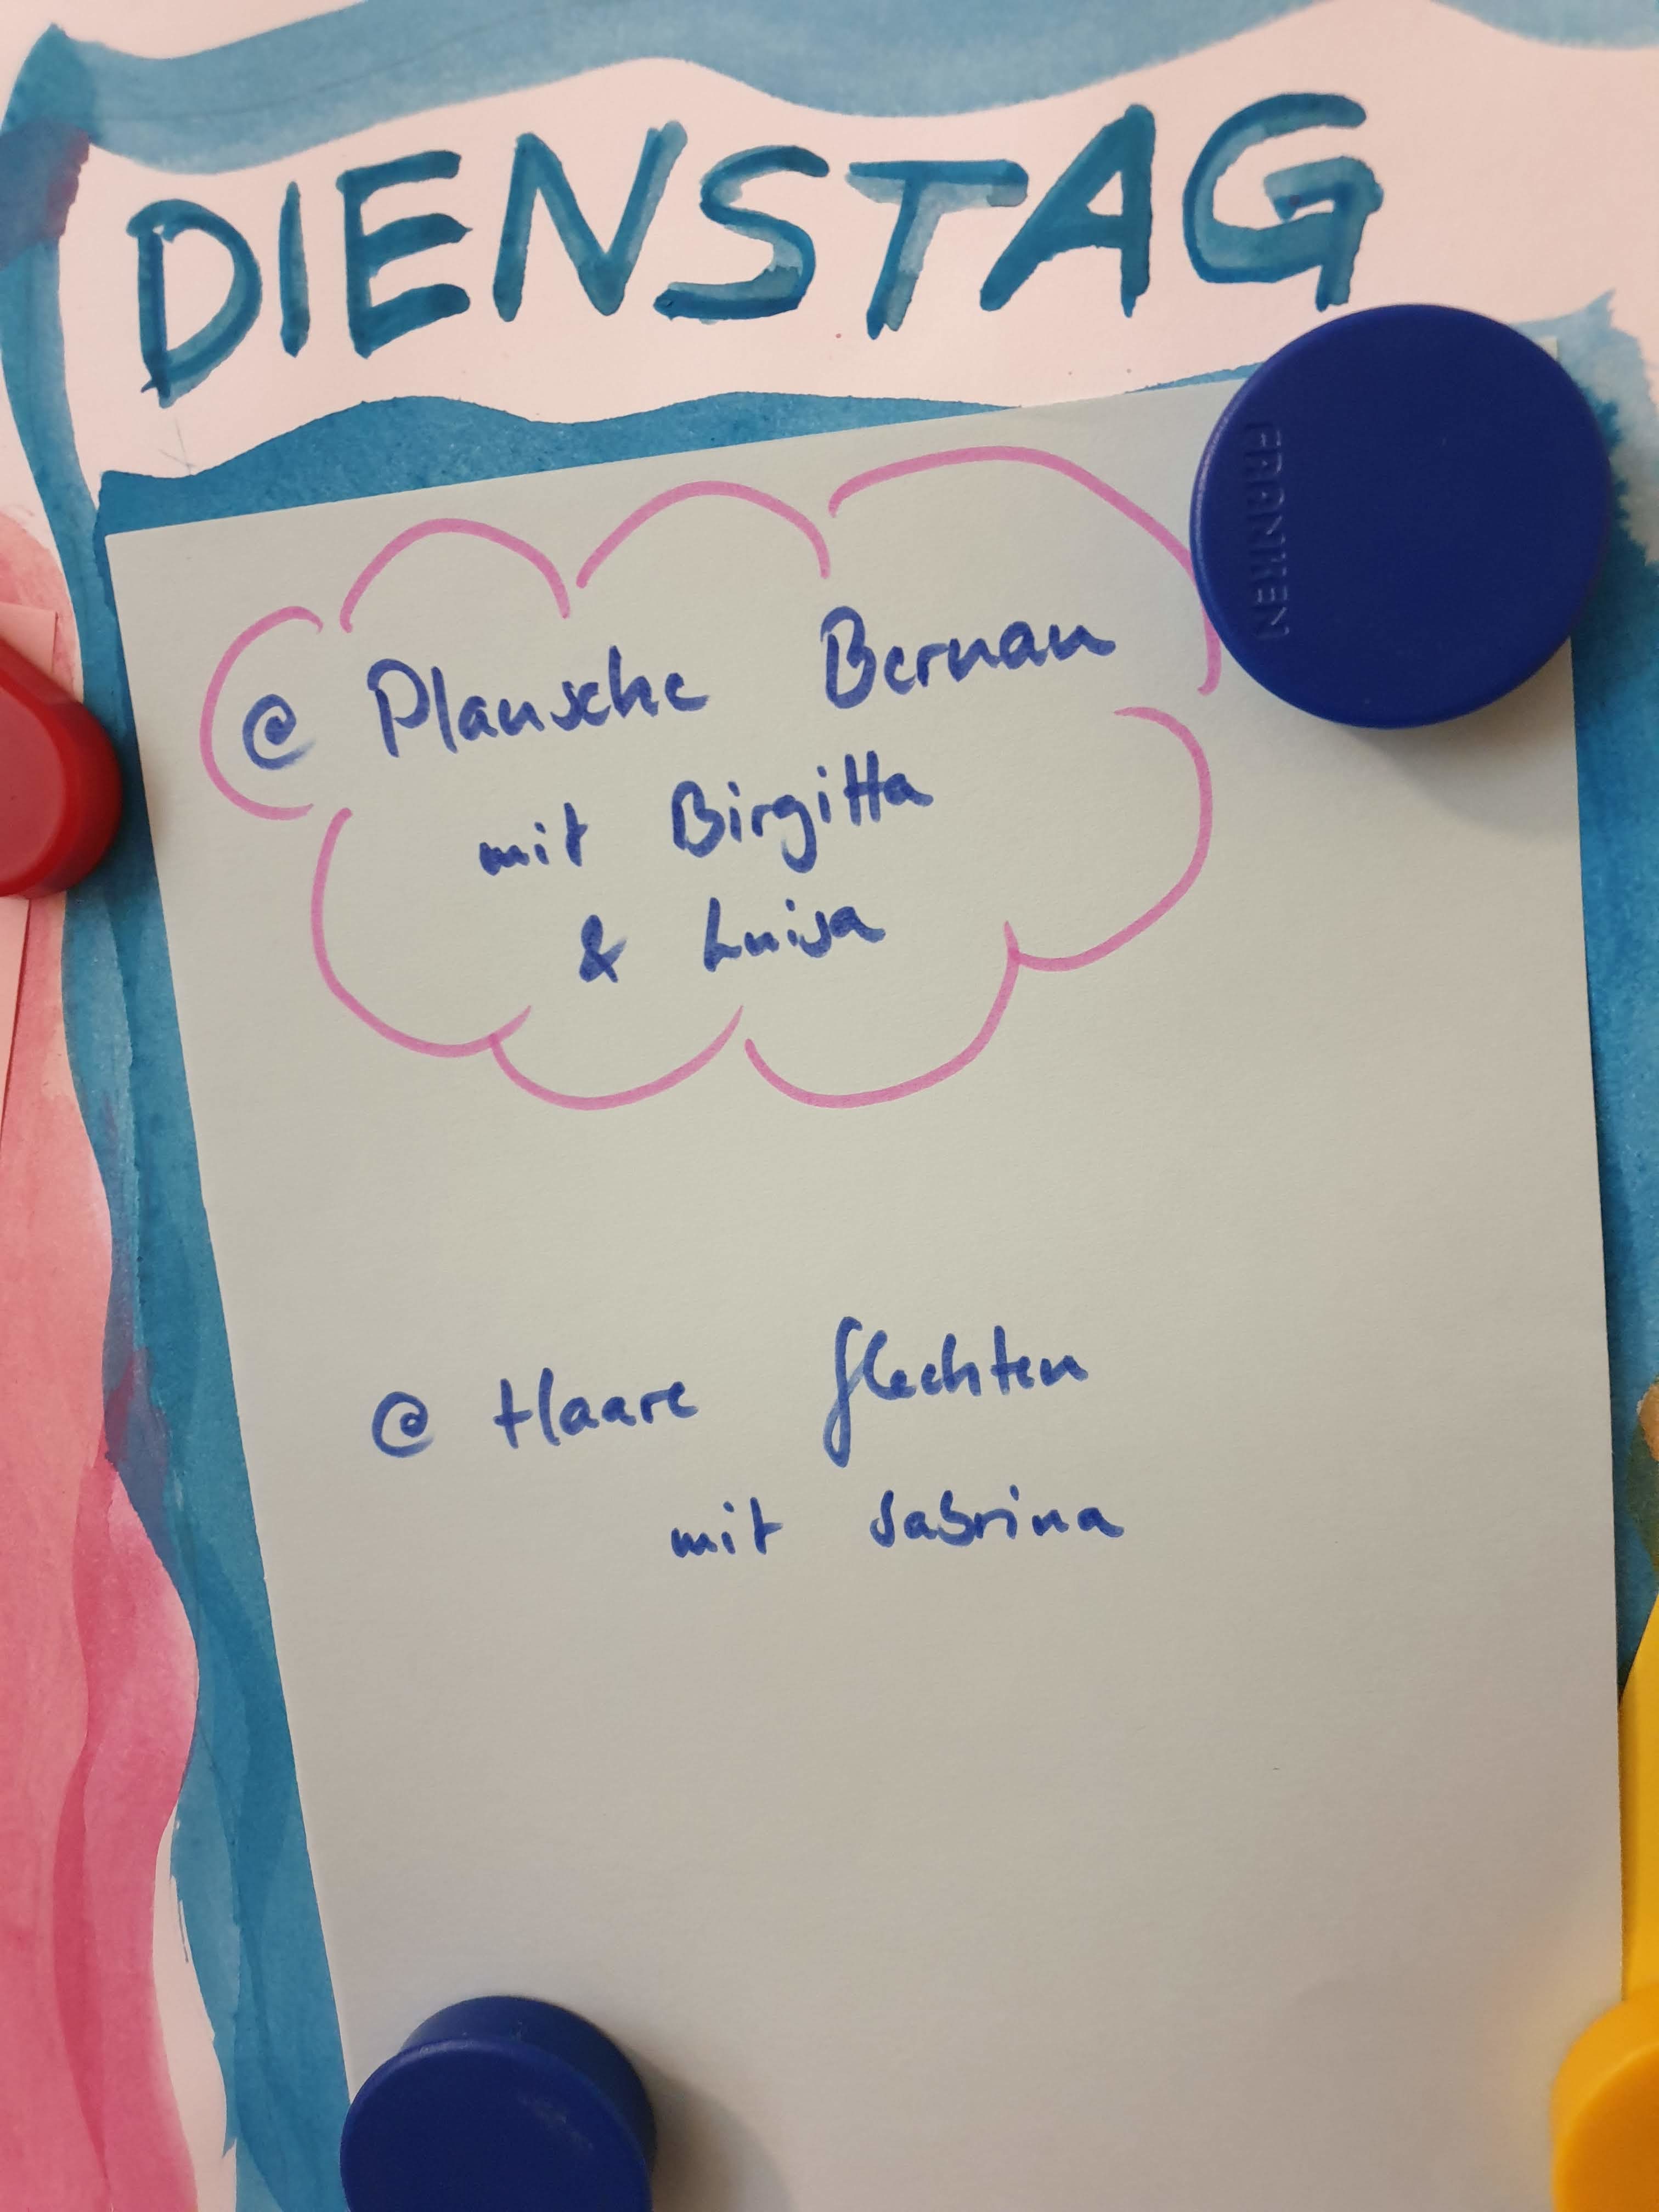 DIENSTAG
FRANKEN
@ Plansche Bernau
mit Birgitta
& Luisa
@ Haare flechten
mit Sabrina